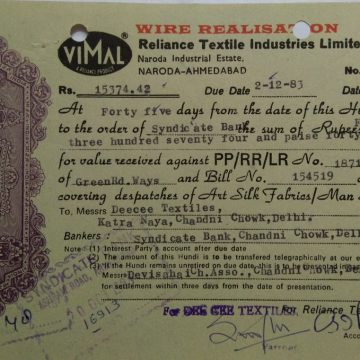 WIRE REALISATION
VIMAL
A RELIANCE PRODUCT
Reliance Textile Industries Limite
Naroda Industrial Estate,
NARODA-AHMEDABAD
No.
Rs. 15374.42 Due Date 2-12-83 Date
At Forty five days from the date of this H
to the order of Syndicate Bank the sum of Rupee
three hundred seventy four and paise forty
for value received against PP/RR/LR No. 1871
of GreenRd.Ways and Bill No. 154519 d
covering despatches of Art Silk Fabrics/Man
To Messrs Deecee Textiles,
Katra Naya, Chandni Chowk,Delhi.
Bankers : Syndicate Bank,Chandni Chowk,De
Note (1) Interest Party's account after due date
(2) The amount of this Hundi is to be transferred telegraphically at our
(3) If the Hundi remains unpresented on due date this is to be presented
Messrs Chandni Chowk,
for settlement within three days from the date of presentation.
SYNDICATE
16913
For DEE CEE TEXTILE
For Reliance T
Partner
Acco